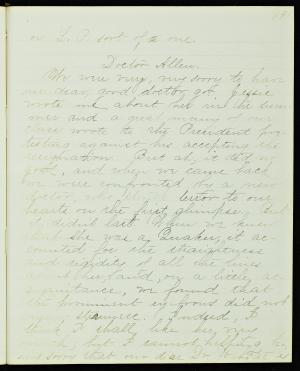 or L. P. sort of a one.
Doctor Allen.
We were very, very sorry to have
our dear, good doctor go. Jessie
wrote me about her in the sum-
mer and a great many of our
class wrote to the President pro-
testing against his accepting the
resignation. But ah, it did no
good, and when we came back
we were confronted by a new
doctor, who terror to our
hearts on the first glimpse. But
it didn't last. When we knew
that she was a Quaker, it ac-
counted for the straightness
and rigidity of all the lines
about her, and, on a little ac-
quaintance, we found that
the prominent eyebrows did not
Indeed, I
think I shall like her very
much, but I cannot help being
sorry that our dear Dr.